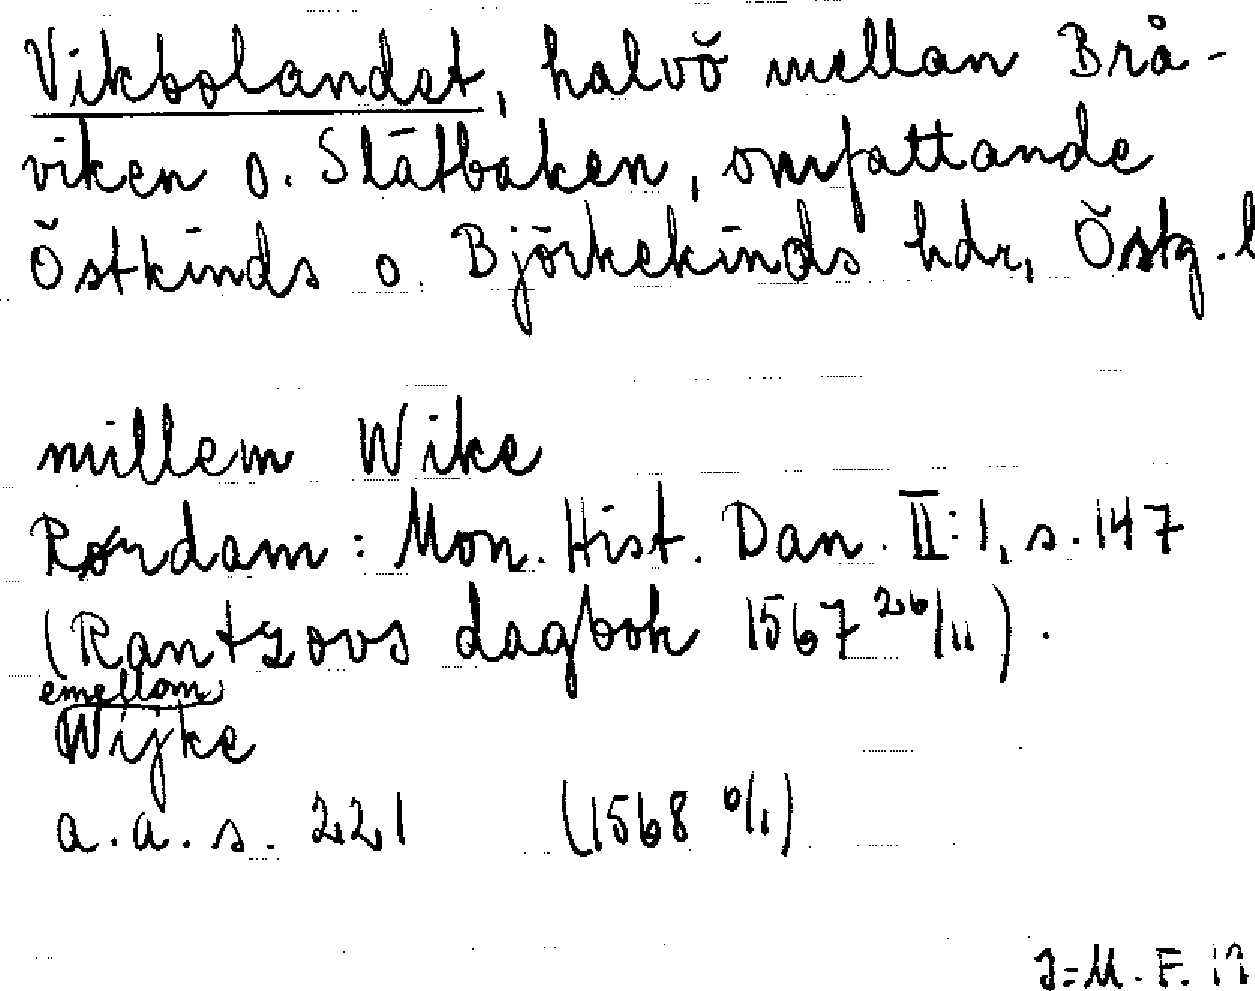 Vikbolandet, halvö mellan Brå-
viken o. Slätbaken, omfattande
Östkinds o. Björkekinds hdr, Östg. l
millem Wike
Rørdam: Mon. Hist. Dan. II:1, s. 147
(Rantzovs dagbok 1567 26/11).
emellom
Wijke
a. a. s. 221 (1568 6/1)
J-M. F.